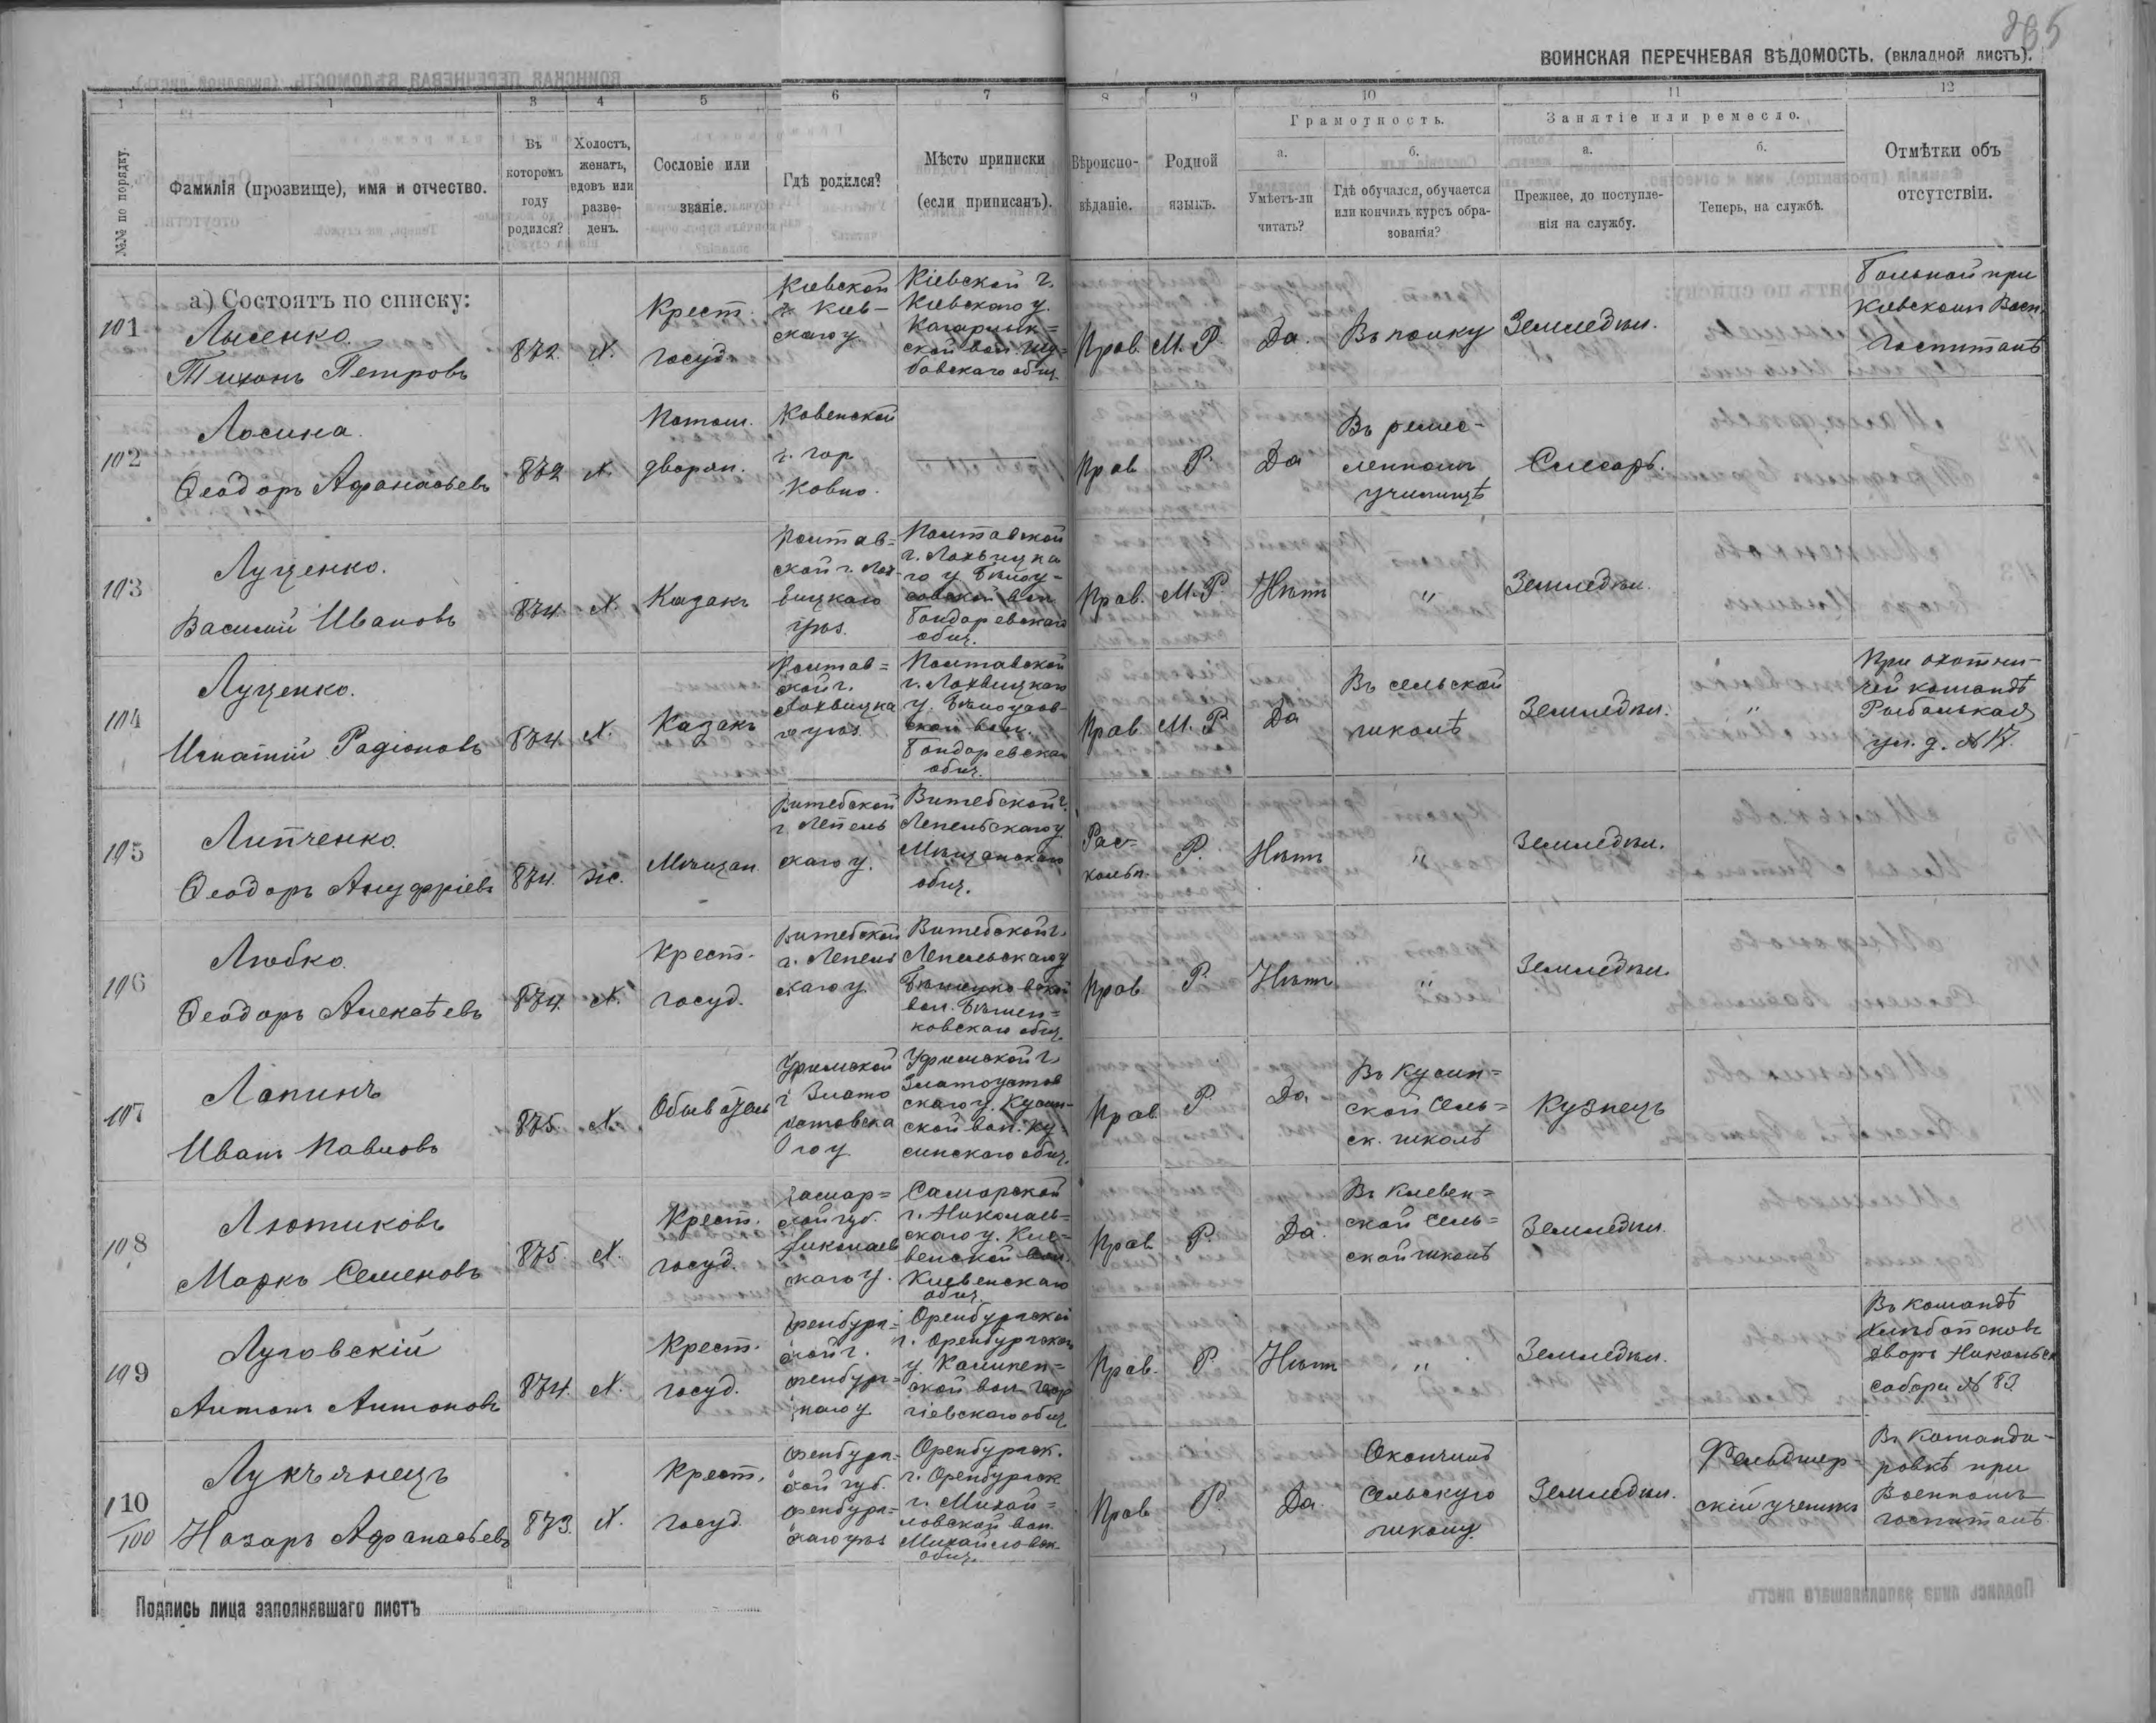 ВОИНСКАЯ ПЕРЕЧНЕВАЯ ВѢДОМОСТЬ. (вкладной листъ).
1 1 3 4 5 6 7 8 9 10 11 12
№№ по порядку.
Фамилія (прозвище), имя и отчество.
Въ которомъ году родился?
Холостъ, женатъ, вдовъ или разведенъ.
Сословіе или званіе.
Гдѣ родился?
Мѣсто приписки (если приписанъ).
Вѣроисповѣданіе.
Родной языкъ.
Грамотность.
а. Умѣетъ-ли читать?
б. Гдѣ обучался, обучается или кончилъ курсъ образованія?
Занятіе или ремесло.
а. Прежнее, до поступленія на службу.
б. Теперь, на службѣ.
Отмѣтки объ отсутствіи.
а) Состоятъ по списку:
101
Лысенко.
Тихонъ Петровъ
872. Х.
Крест.
госуд.
Кіевской
г. Кіев-
скаго у
Кіевской г.
Кіевскаго у.
Кагарлык=
ской вол.
Прав. М. Р. Да. Въ полку Земледѣл.
Больной при
Кіевскомъ Воен.
госпиталѣ
102
Лосина.
Ѳеодоръ Афанасьевъ
872 Х.
Потом.
дворян.
Ковенской
г. гор
Ковно.
—
Прав Р. Да
Въ ремес-
ленномъ
училищѣ
Слесарь.
103
Луценко.
Василій Ивановъ
874. Х. Казакъ
Полтав=
ской г. Лох-
вицкаго
уѣз.
Полтавской
г. Лохвицка
го у. Бѣлоу-
совской вол
Бондаревскаго
общ.
Прав. М. Р. Нѣтъ " Земледѣл.
104
Луценко.
Игнатій Радіоновъ
874. Х. Казакъ
Полтав=
ской г.
Лохвицка
го уѣз.
Полтавской
г. Лохвицкаго
у. Бѣлоусов-
ской вол.
Бондаревскаго
общ.
Прав М. Р. Да
Въ сельской
школѣ
Земледѣл. "
При охотни-
чей командѣ
Рыбальская
ул. д. № 17.
105
Липченко.
Ѳеодоръ Ануфріевъ
874. ж. Мѣщан.
Витебской
г. Лепель
скаго у.
Витебской г.
Лепельскаго у
Мѣщанскаго
общ.
Рас-
кольн.
Р. Нѣтъ " Земледѣл.
106
Любко.
Ѳеодоръ Алексѣевъ
874. Х.
Крест.
госуд.
Витебской
г. Лепель
скаго у
Витебской г.
Лепельскаго у
вол. Бѣшен=
ковскаго общ.
Прав Р. Нѣтъ " Земледѣл.
107
Лапинъ
Иванъ Павловъ
875. Х. Обыватель
Уфимской
г Злато
устовска
го у.
Уфимской г.
Златоустов
скаго у. Кусин-
ской вол. Ку-
синскаго общ.
Прав Р. Да
Въ Кусин=
ской Сель=
ск. школѣ
Кузнецъ
108
Лютиковъ
Маркъ Семеновъ
875. Х.
Крест.
госуд.
Самар=
ской губ.
Николаев
скаго у.
Самарской
г. Николаев=
скаго у. Кле=
венской вол.
Клевенскаго
общ.
Прав Р. Да.
Въ Клевен=
ской Сель=
ской школѣ
Земледѣл.
109
Луговскій
Антонъ Антоновъ
874. Х.
Крест.
госуд.
Оренбург=
ской г.
Оренбург=
скаго у
Оренбургской
г. Оренбургскаго
у.
ской вол. Геор
гіевскаго общ
Прав. Р Нѣтъ " Земледѣл.
Въ командѣ
Хлѣбопековъ
дворъ Никольск
собора № 83
110
/100
Лукъянецъ
Назаръ Афанасьевъ
873. Х.
Крест.
госуд.
Оренбург-
ской губ.
Оренбург=
скаго уѣз
Оренбургск.
г. Оренбургск
г. Михай=
ловской вол.
Михайловск.
общ.
Прав Р Да.
Окончилъ
Сельскую
школу.
Земледѣл.
Фельдшер-
скій ученикъ
Въ команди-
ровкѣ при
Военномъ
госпиталѣ.
Подпись лица заполнявшаго листъ